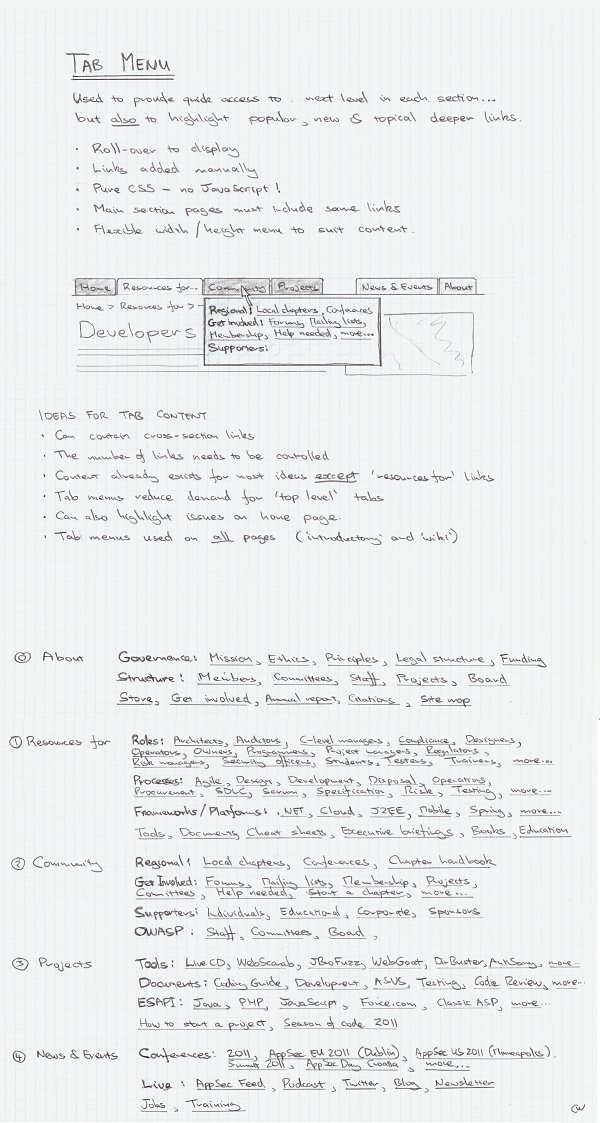 TAB MENU
Used to provide quick access to : next level in each section...
but also to highlight popular, new & topical deeper links.
· Roll-over to display
· Links added manually
· Pure CSS – no JavaScript!
· Main section pages must include same links
· Flexible width/height menu to suit content.
Home Resources for... Community Projects News & Events About
Home > Resources for >
Developers
Regional: Local chapters, Conferences
Get Involved: Forums, Mailing lists,
Membership, Help needed, more...
Supporters:
IDEAS FOR TAB CONTENT
· Can contain cross-section links
· The number of links needs to be controlled
· Content already exists for most ideas except 'resources for' links
· Tab menus reduce demand for 'top level' tabs
· Can also highlight issues on home page.
· Tab menus used on all pages ('introductory' and 'wiki')
⓪ About Governance: Mission, Ethics, Principles, Legal structure, Funding
Structure: Members, Committees, Staff, Projects, Board
Store, Get involved, Annual report, Citations, Site map
① Resources for Roles: Architects, Auditors, C-level managers, Compliance, Designers,
Operators, Owners, Programmers, Project managers, Regulators,
Risk managers, Security officers, Students, Testers, Trainers, more...
Processes: Agile, Design, Development, Disposal, Operations,
Procurement, SDLC, Scrum, Specification, Risk, Testing, more...
Frameworks/Platforms: .NET, Cloud, J2EE, Mobile, Spring, more...
Tools, Documents, Cheat sheets, Executive briefings, Books, Education
② Community Regional: Local chapters, Conferences, Chapter handbook
Get Involved: Forums, Mailing lists, Membership, Projects,
Committees, Help needed, Start a chapter, more...
Supporters: Individuals, Educational, Corporate, Sponsors
OWASP: Staff, Committees, Board,
③ Projects Tools: Live CD, WebScarab, JBroFuzz, WebGoat, DirBuster, AntiSamy, more...
Documents: Coding Guide, Development, ASVS, Testing, Code Review, more...
ESAPI: Java, PHP, JavaScript, Force.com, Classic ASP, more...
How to start a project, Season of code 2011
④ News & Events Conferences: 2011, AppSec EU 2011 (Dublin), AppSec US 2011 (Minneapolis),
Summit 2011, AppSec Day Croatia, more...
Live: AppSec Feed, Podcast, Twitter, Blog, Newsletter
Jobs, Training